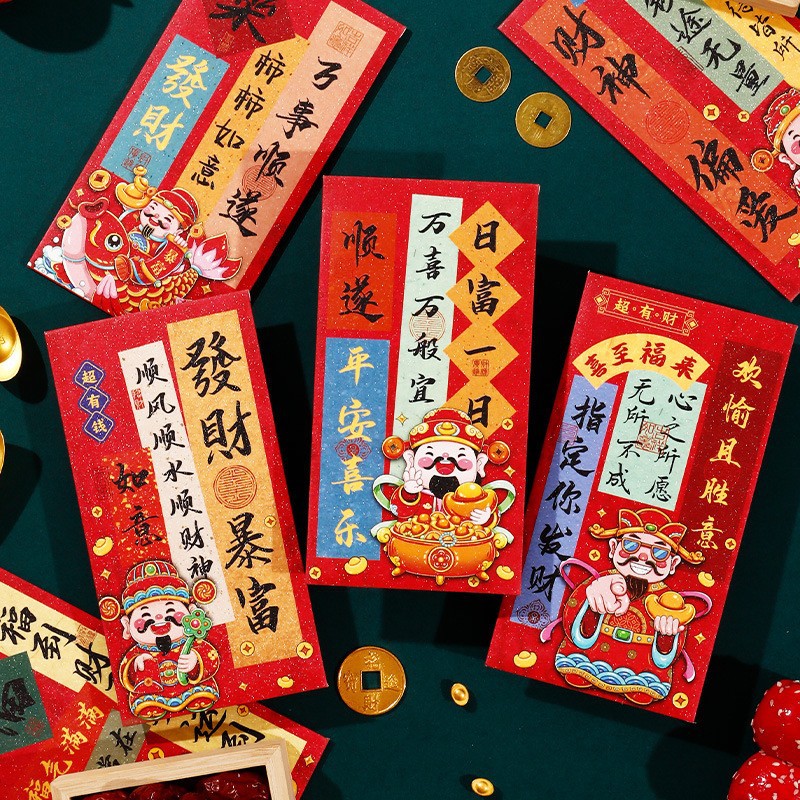 發財
柿柿如意
万事顺遂
财神
偏爱
前途无量
顺遂
平安喜乐
万喜万般宜
日富一日
超有钱
如意
顺风顺水顺财神
發財
暴富
超有财
喜至福来
指定你发财
心之所愿
无所不成
欢愉且胜意
福到财
福气满满